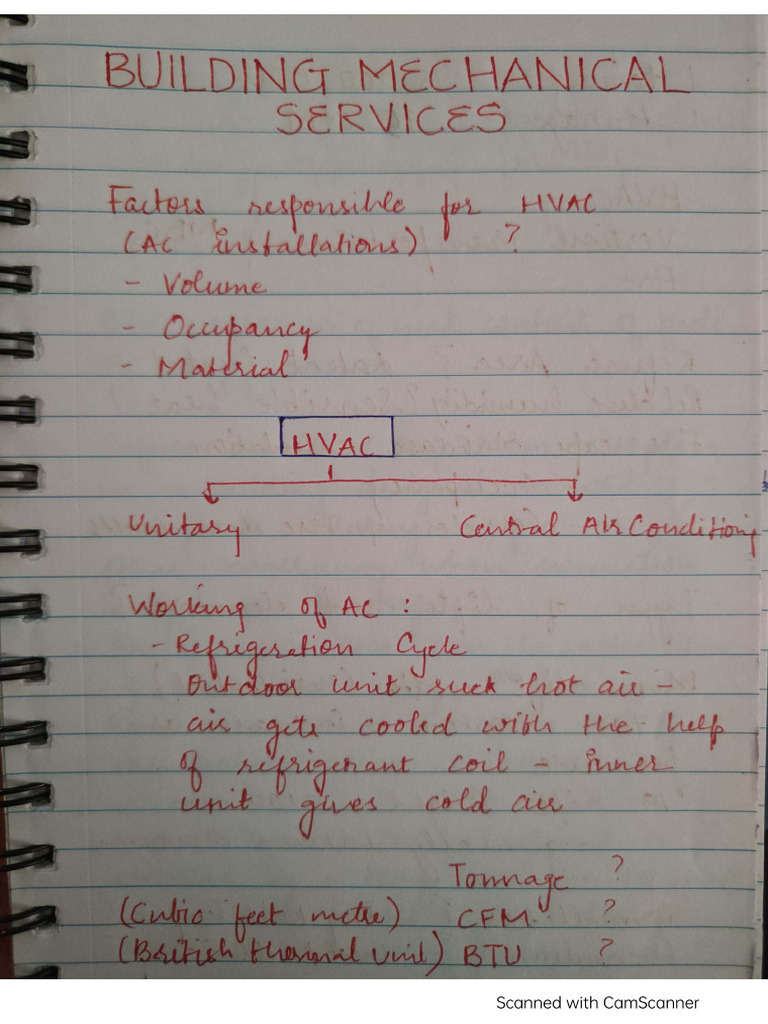 BUILDING MECHANICAL
SERVICES
Factors responsible for HVAC
(AC installations) ?
- Volume
- Occupancy
- Material
HVAC
Unitary Central Air Conditioning
Working of AC :
- Refrigeration Cycle
Outdoor unit suck hot air -
air gets cooled with the help
of refrigerant coil - inner
unit gives cold air
Tonnage ?
(Cubic feet metre) CFM ?
(British thermal unit) BTU ?
Scanned with CamScanner